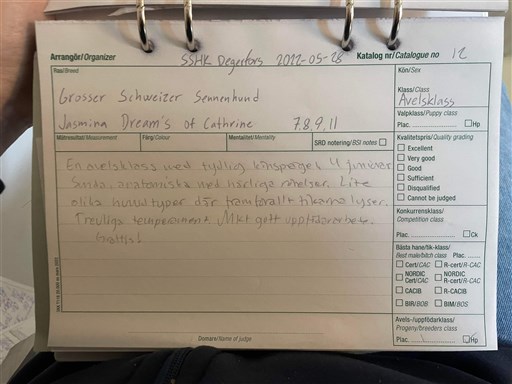 Arrangör/Organizer SSHK Degerfors 2022-05-28 Katalog nr/Catalogue no 12
Ras/Breed
Grosser Schweizer Sennenhund
Jasmina Dream's of Cathrine 7,8,9,11
Kön/Sex
Klass/Class
Avelsklass
Valpklass/Puppy class
Plac. Hp
Mätresultat/Measurement Färg/Colour Mentalitet/Mentality SRD notering/BSI notes
En avelsklass med tydlig könsprägel. 4 junior
Sunda, anatomiska med härliga rörelser. Lite
olika huvudtyper där framförallt tikarna lyser.
Trevliga temperament. Mkt gott uppfödararbete.
Grattis!
Kvalitetspris/Quality grading
Excellent
Very good
Good
Sufficient
Disqualified
Cannot be judged
Konkurrensklass/
Competition class
Plac. Ck
Bästa hane/tik-klass/
Best male/bitch class Plac.
Cert/CAC R-cert/R-CAC
NORDIC Cert/CAC NORDIC R-Cert/R-CAC
CACIB R-CACIB
BIR/BOB BIM/BOS
Avels-/uppfödarklass/
Progeny/breeders class
Plac. 1 Hp
Domare/Name of judge